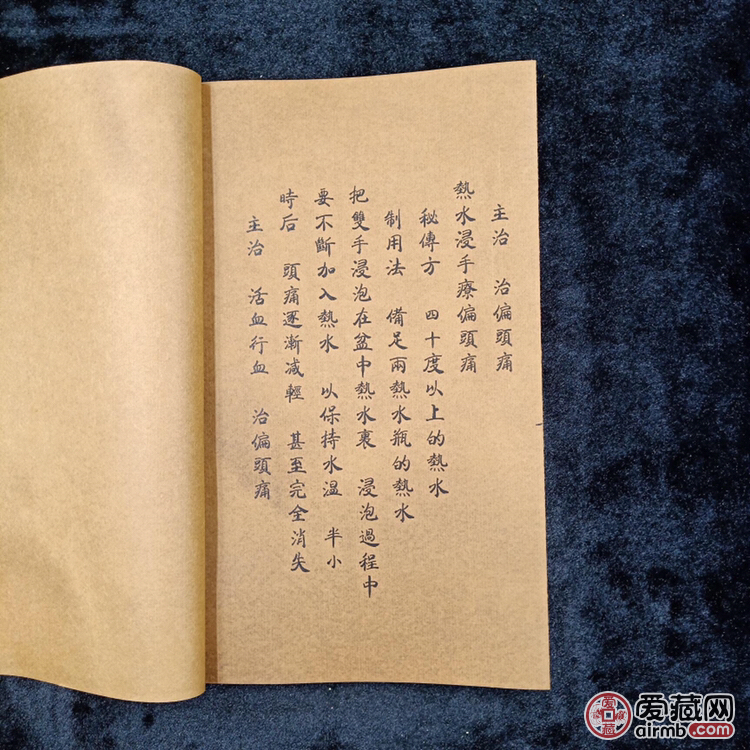 主治 治偏頭痛
熱水浸手療偏頭痛
秘傳方 四十度以上的熱水
制用法 備足兩熱水瓶的熱水
把雙手浸泡在盆中熱水裏 浸泡過程中
要不斷加入熱水 以保持水溫 半小
時后 頭痛逐漸减輕 甚至完全消失
主治 活血行血 治偏頭痛
爱藏网
airmb.com